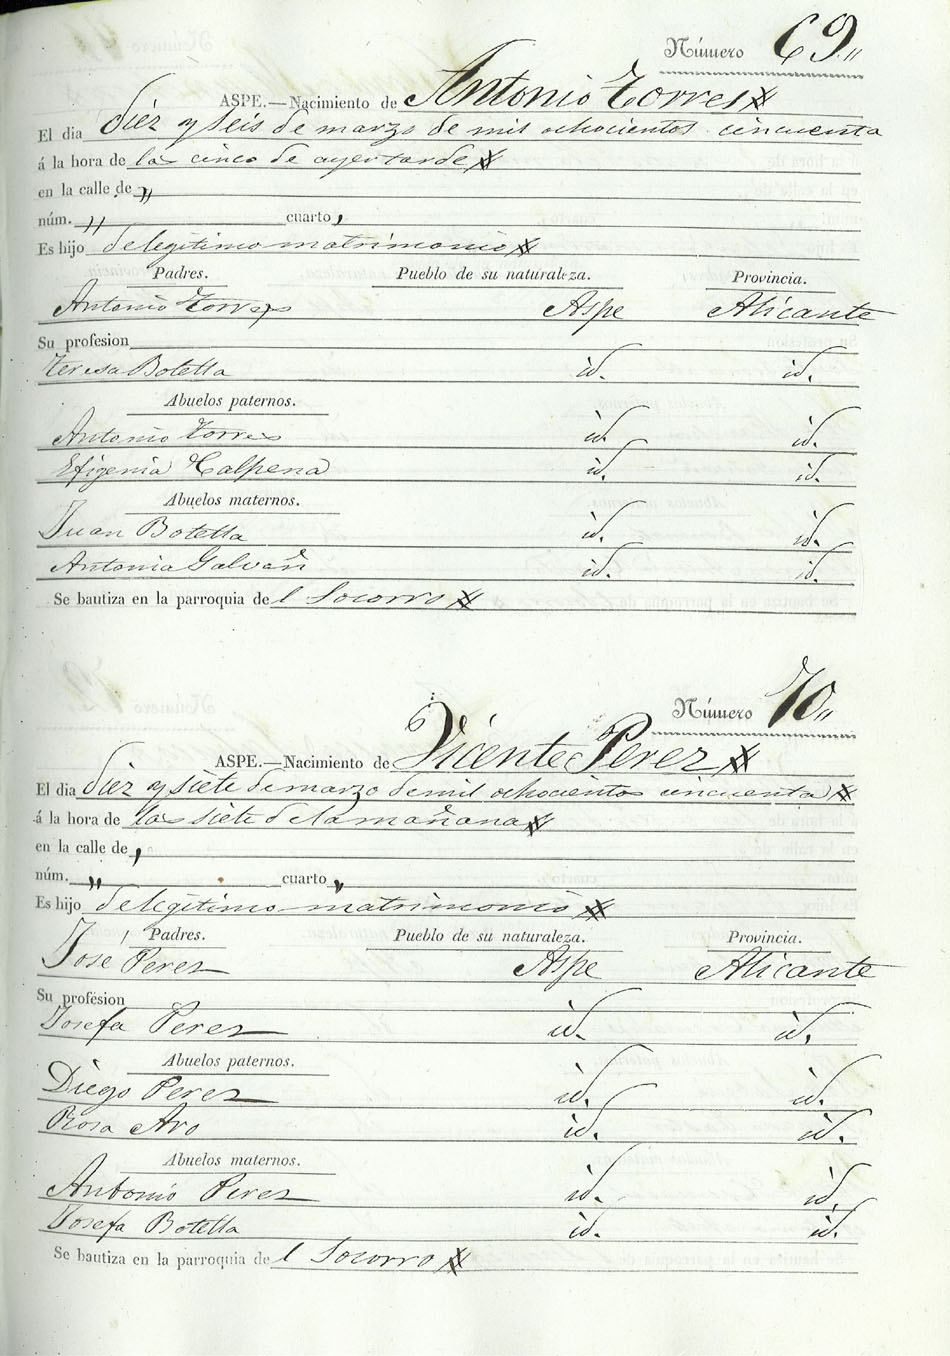 Número 69,,
ASPE.—Nacimiento de Antonio Torres
El dia diez y seis de marzo de mil ochocientos cincuenta
á la hora de las cinco de ayer tarde
en la calle de ,,
núm. ,, cuarto ,
Es hijo de legitimo matrimonio
Padres. Pueblo de su naturaleza. Provincia.
Antonio Torres Aspe Alicante
Su profesion
Teresa Botella id. id.
Abuelos paternos.
Antonio Torres id. id.
Efigenia Calpena id. id.
Abuelos maternos.
Juan Botella id. id.
Antonia Galvañ id. id.
Se bautiza en la parroquia del Socorro
Número 70,,
ASPE.—Nacimiento de Vicente Perez
El dia diez y siete de marzo de mil ochocientos cincuenta
á la hora de las siete de la mañana
en la calle de ,
núm. ,, cuarto ,,
Es hijo de legitimo matrimonio
Padres. Pueblo de su naturaleza. Provincia.
José Perez Aspe Alicante
Su profesion
Josefa Perez id. id.
Abuelos paternos.
Diego Perez id. id.
Rosa Avo id. id.
Abuelos maternos.
Antonio Perez id. id.
Josefa Botella id. id.
Se bautiza en la parroquia del Socorro